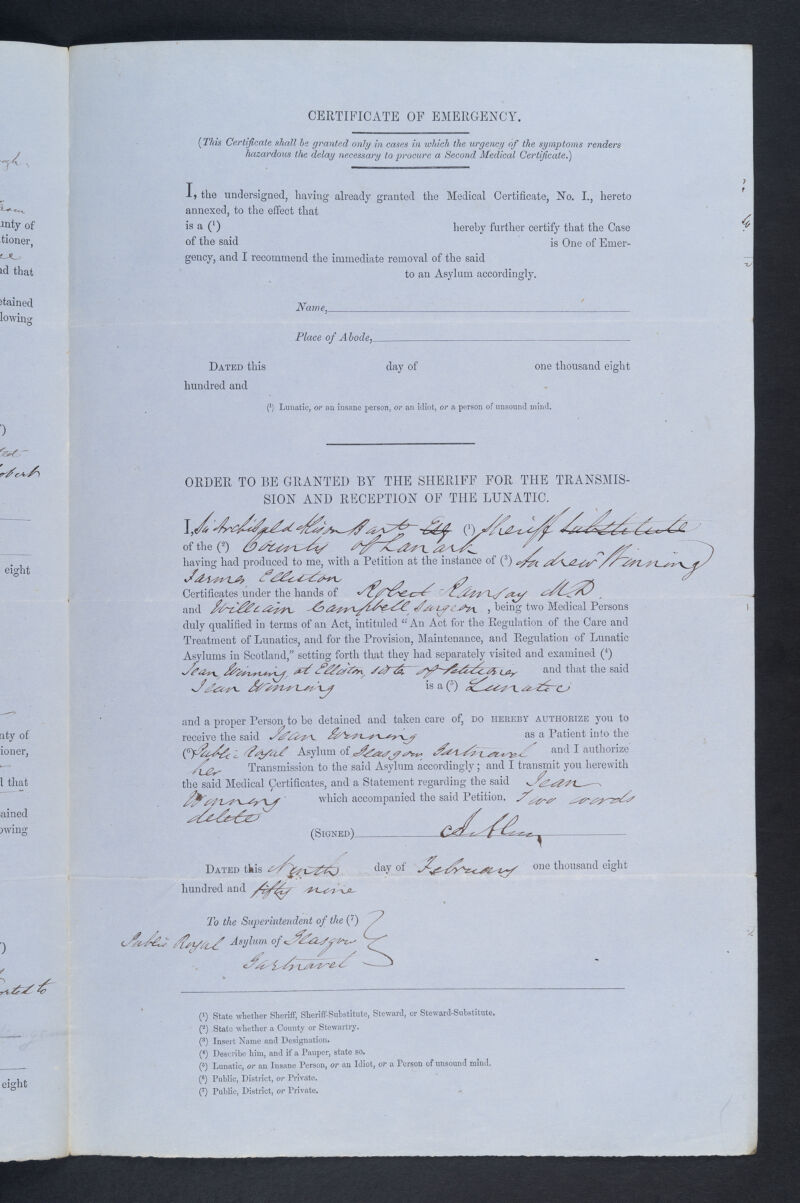 CERTIFICATE OF EMERGENCY.
(This Certificate shall be granted only in cases in which the urgency of the symptoms renders
hazardous the delay necessary to procure a Second Medical Certificate.)
I, the undersigned, having already granted the Medical Certificate, No. I., hereto
annexed, to the effect that
is a (¹) hereby further certify that the Case
of the said is One of Emer-
gency, and I recommend the immediate removal of the said
to an Asylum accordingly.
Name,
Place of Abode,
DATED this day of one thousand eight
hundred and
(¹) Lunatic, or an insane person, or an idiot, or a person of unsound mind.
ORDER TO BE GRANTED BY THE SHERIFF FOR THE TRANSMIS-
SION AND RECEPTION OF THE LUNATIC.
I, Sir Archibald Alison Bart Esq (¹) Sheriff Substitute
of the (²) County of Lanark
having had produced to me, with a Petition at the instance of (³) Andrew Winning
Farmer Elliston
Certificates under the hands of Robert Ramsay MD
and William Campbell Surgeon, being two Medical Persons
duly qualified in terms of an Act, intituled "An Act for the Regulation of the Care and
Treatment of Lunatics, and for the Provision, Maintenance, and Regulation of Lunatic
Asylums in Scotland," setting forth that they had separately visited and examined (⁴)
Jean Winning at Elliston, sister of Petitioner and that the said
Jean Winning is a (⁵) Lunatic
and a proper Person to be detained and taken care of, DO HEREBY AUTHORIZE you to
receive the said Jean Winning as a Patient into the
(⁶) Public Royal Asylum of Glasgow Gartnavel and I authorize
her Transmission to the said Asylum accordingly; and I transmit you herewith
the said Medical Certificates, and a Statement regarding the said Jean
Winning which accompanied the said Petition. Two words
delete
(SIGNED) A Alison
DATED this Ninth day of February one thousand eight
hundred and fifty nine
To the Superintendent of the (⁷)
Public Royal Asylum of Glasgow
Gartnavel
(¹) State whether Sheriff, Sheriff-Substitute, Steward, or Steward-Substitute.
(²) State whether a County or Stewartry.
(³) Insert Name and Designation.
(⁴) Describe him, and if a Pauper, state so.
(⁵) Lunatic, or an Insane Person, or an Idiot, or a Person of unsound mind.
(⁶) Public, District, or Private.
(⁷) Public, District, or Private.